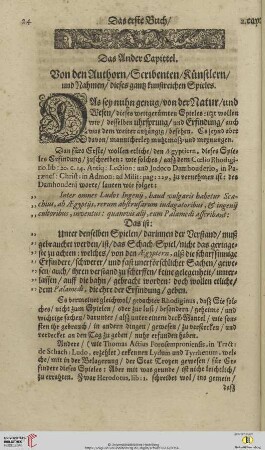 24
Das erste Buch/
2. cap.
Das Ander Capittel.
Von den Authorn/ Scribenten/ Künstlern/
und Nahmen/ dieses gantz kunstreichen Spieles.
DAs sey nuhn genug/ von der Natur/ und
Wesen/ dieses weitgerümten Spieles: itzt wollen
wir/ desselben uhrsprung/ und Erfindung/ auch
was dem weiter anhängig/ besehen. Es seynd aber
davon/ mancherley mutmaß/ und meynungen.
Dan fürs Erste/ wollen etliche/ den Ægyptiern, dieses Spie
les Erfindung/ zuschreiben: wie solches/ auß dem Cœlio Rhodigi-
no lib: 20. c. 14. Antiq: Lection: und Jodoco Damhouderio, in Pa-
træne: Christ: in Admon: ad Milit: pag: 129. zu vernehmen ist: des
Damhouderii worte, lauten wie folget:
Inter omnes Ludos Ingenij, haud vulgaris habetur Sca-
chius, ab Ægyptijs, rerum abstrusarum indagatoribus, & Ingenij
cultoribus, inventus: quanquam alij, eum Palamedi asscribant:
Das ist:
Unter denselben Spielen/ darinnen der Verstand/ muß
gebraucht werden/ ist/ das Schach-Spiel/ nicht das gering-
ste zu achten: welches/ von den Ægyptiern, alß die schärffsinnige
Erfinder/ schwerer/ und fast unerforschlicher Sachen/ gewe-
sen/ auch/ ihren verstand zu schärffen/ keine gelegenheit/ unter-
lassen/ auff die bahn/ gebracht werden: doch wollen etliche/
dem Palamedi, die ehre der Erfindung/ geben.
So vermeinet gleichwohl/ gedachter Rhodiginus, daß Sie solches
nicht zum Spielen/ oder zur lust/ besondern/ geheime/ und
wichtige sachen/ darunter/ alß unter einem deck Mantel/ wie son-
sten ihr gebrauch/ in andern dingen/ gewesen/ zu verstecken/ und
verdecket an den Tag zu geben/ mehr erfunden haben.
Andere/ (wie Thomas Actius Forosemproniensis, in Tract:
de Schach: Ludo, erzehlet/ erkennen Lydum und Tyrrhenum, wel-
che/ mit in der Belagerung/ der Stat Troyen gewesen/ für Er-
finder dieses Spieles: Aber mit was grunde/ ist nicht leichtlich/
zu errahten. Zwar Herodotus, lib: 1. schreibet wol/ ins gemein/
daß